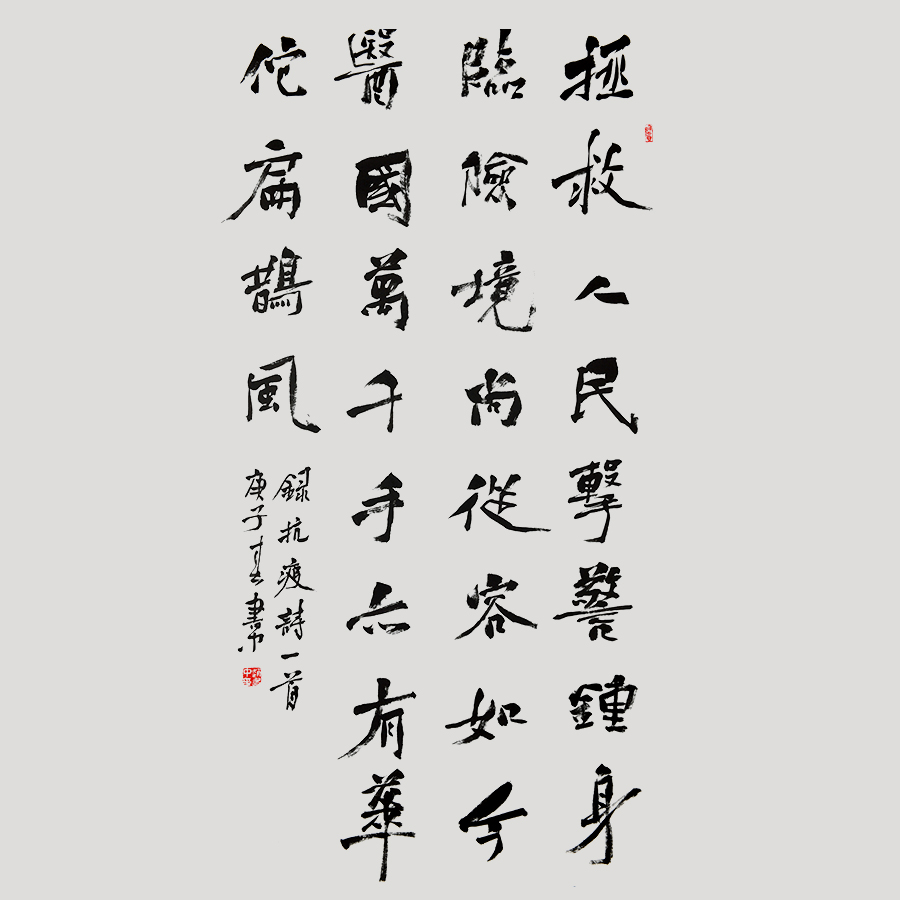 拯救人民擊警鍾身
臨險境尚從容如今
醫國萬千手亦有華
佗扁鵲風
録抗疫詩一首
庚子春書